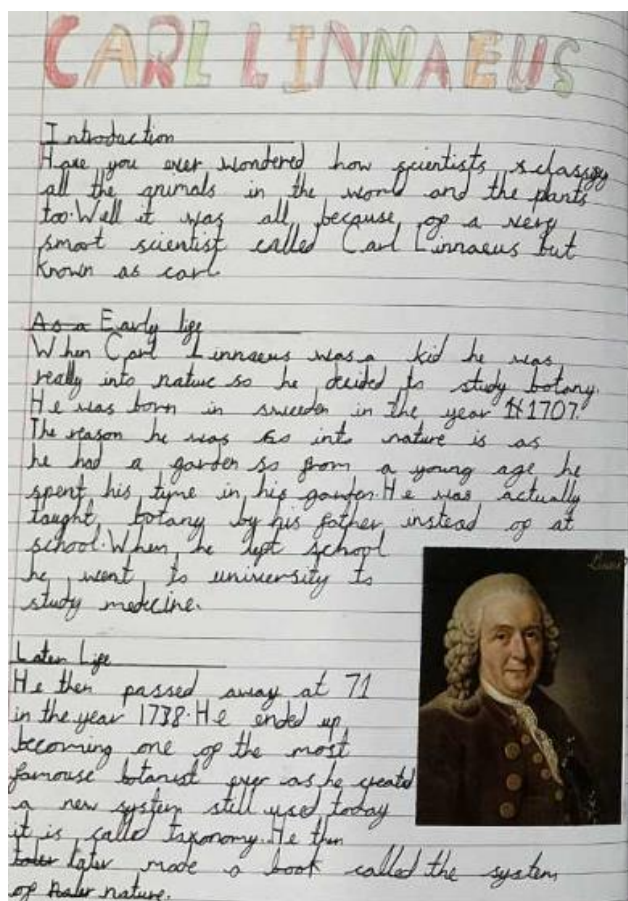 CARL LINNAEUS
Introduction
Have you ever wondered how scientists classyy
all the animals in the world and the plants
too.Well it was all because of a very
smart scientist called Carl Linnaeus but
known as carl.
As a Early life
When Carl Linnaeus was a kid he was
really into nature so he decided to study botany.
He was born in sweeden in the year 1707.
The reason he was so into nature is as
he had a garden so from a young age he
spent his time in his garden.He was actually
taught botany by his father instead of at
school.When he left school
he went to university to
study medecine.
Later Life
He then passed away at 71
in the year 1738.He ended up
becoming one of the most
famouse botanist ever as he created
a new system still used today
it is called taxonomy.He then
later made a book called the system
of nature.